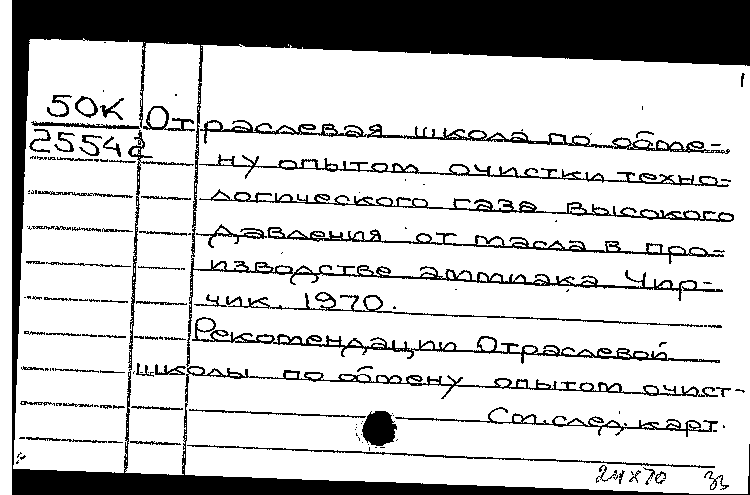 1
50К Отраслевая школа по обме-
25542 ну опытом очистки техно-
логического газа высокого
давления от масла в про-
изводстве аммиака Чир-
чик. 1970.
Рекомендации Отраслевой
школы по обмену опытом очист-
См.след.карт.
24х70